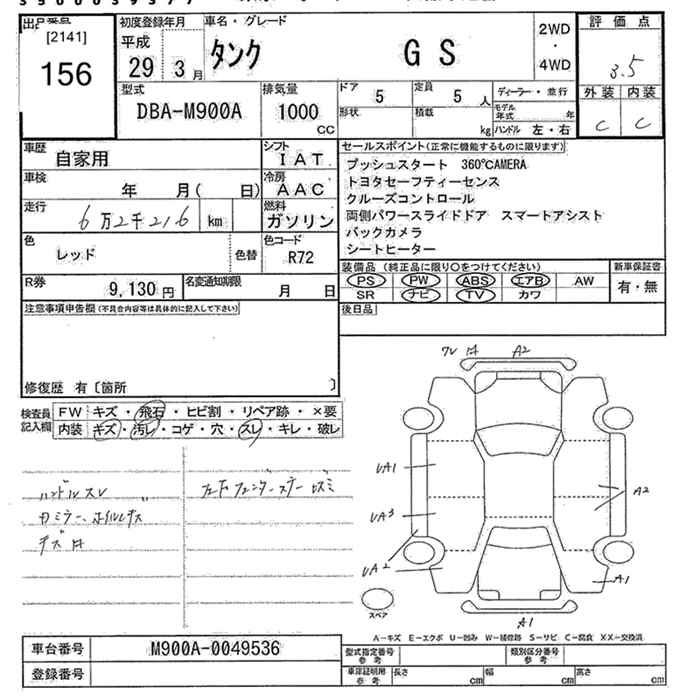 出品番号 初度登録年月 車名・グレード 2WD 評価点
[2141] 平成 タンク GS ・ 3.5
156 29 3月 4WD 外装 内装
C C
型式 排気量 ドア 5 定員 5人 ディーラー・並行
DBA-M900A 1000 CC 形状 積載 kg モデル年式 年
ハンドル 左・右
車歴 自家用 シフト IAT セールスポイント(正常に機能するものに限ります)
車検 年 月( 日) 冷房 AAC プッシュスタート 360℃AMERA
走行 6万2千216 km 燃料 ガソリン トヨタセーフティーセンス
クルーズコントロール
両側パワースライドドア スマートアシスト
色 レッド 色替 色コード R72 バックカメラ
シートヒーター
R券 9,130円 名変通知期限 月 日 装備品(純正品に限り○をつけてください) 新車保証書
PS PW ABS エアB AW 有・無
SR ナビ TV カワ
注意事項申告欄(不具合内容等は具体的に記入して下さい) 後日品
修復歴 有〔箇所 〕
検査員記入欄 FW キズ・飛石・ヒビ割・リペア跡・×要
内装 キズ・汚レ・コゲ・穴・スレ・キレ・破レ
A2
ハンドルスレ
UA1
A2
UA3
UA2
A1
スペア
A1
A-キズ E-エクボ U-凹み W-補修跡 S-サビ C-腐食 XX-交換済
車台番号 M900A-0049536 型式指定番号 参考 類別区分番号 参考
登録番号 車庫証明用 参考 長さ cm 幅 cm 高さ cm